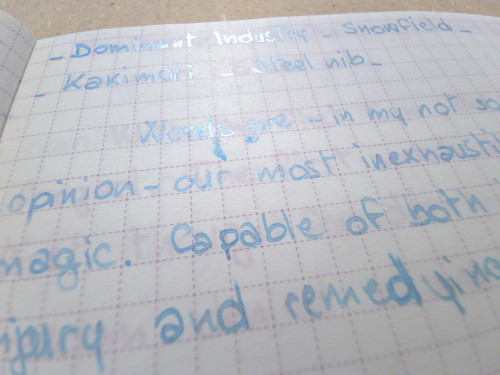 - Dominant Industry - Snowfield -
- Kakimori - Steel nib -
Words are - in my not so
opinion - our most inexhausti
magic. Capable of both
njury and remedying